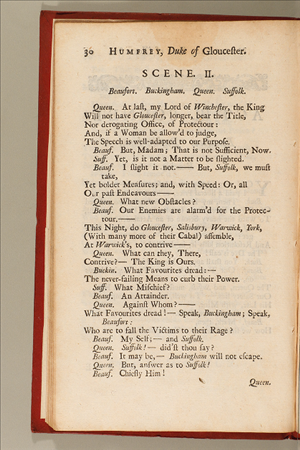 30 HUMFREY, Duke of Gloucester.
SCENE. II.
Beaufort. Buckingham. Queen. Suffolk.
Queen. At last, my Lord of Winchester, the King
Will not have Gloucester, longer, bear the Title,
Nor derogating Office, of Protectour:
And, if a Woman be allow'd to judge,
The Speech is well-adapted to our Purpose.
Beauf. But, Madam; That is not Sufficient, Now.
Suff. Yet, is it not a Matter to be slighted.
Beauf. I slight it not.—— But, Suffolk, we must
take,
Yet bolder Measures; and, with Speed: Or, all
Our past Endeavours ——
Queen. What new Obstacles?
Beauf. Our Enemies are alarm'd for the Protec-
tour.——
This Night, do Gloucester, Salisbury, Warwick, York,
(With many more of their Cabal) assemble,
At Warwick's, to contrive ——
Queen. What can they, There,
Contrive?— The King is Ours.
Buckin. What Favourites dread:—
The never-failing Means to curb their Power.
Suff. What Mischief?
Beauf. An Attainder.
Queen. Against Whom?——
What Favourites dread!— Speak, Buckingham; Speak,
Beaufort:
Who are to fall the Victims to their Rage?
Beauf. My Self;— and Suffolk.
Queen. Suffolk!— did'st thou say?
Beauf. It may be,— Buckingham will not escape.
Queen. But, answer as to Suffolk!
Beauf. Chiefly Him!
Queen.